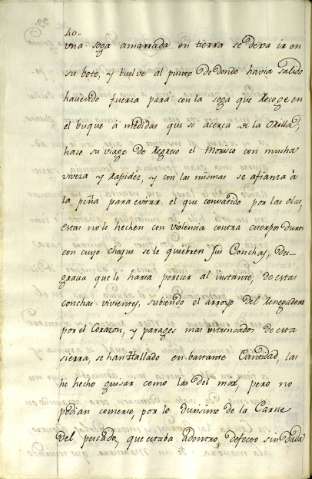 40.
Una soga amarrada en tierra se deva ir en
su bote, y buelve al punto de donde havia salido
haciendo fuerza para con la soga que Recoge en
el buque à medidas que se acerca à la Orilla,
hace su viage de Regreso el Morisco con mucha
viveza y Rapidez, y con las mismas se afianza à
la peña para evitar el que convatido por las olas,
estas no le hechen con violencia contra cuerpos duros
con cuyo choque se le quiebren sus Conchas, des-
gracia que le haria perecer al instante, de estas
conchas vivientes, subiendo el arroyo del
por el Corazon, y parages mas de esta
sierra, se han Hallado en bastante Cantidad, las
he hecho guisar como las del mar, pero no
podian comerse por lo durisimo de la Carne
del pescado, que estaba adentro, defecto sin duda